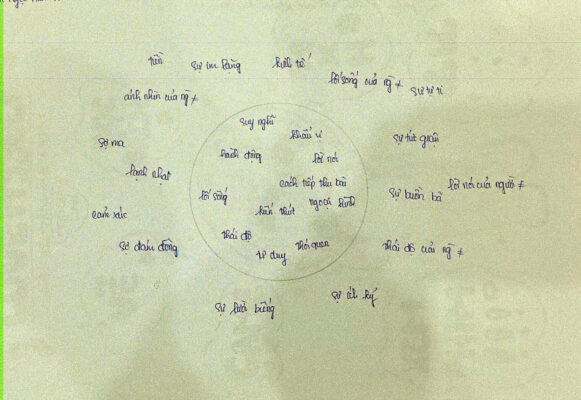 tiền
sự im lặng
kinh tế
lối sống của ng ≠
sự tự ti
ánh nhìn của ng ≠
suy nghĩ
khẩu vị
sợ ma
sự tức giận
hành động
lời nói
lạnh nhạt
cách tiếp thu bài
lời nói của người ≠
lối sống
sự buồn bã
ngoại hình
cảm xúc
kiến thức
thái độ
sợ đám đông
thói quen
thái độ của ng ≠
tư duy
sự ích kỷ
sự lười biếng